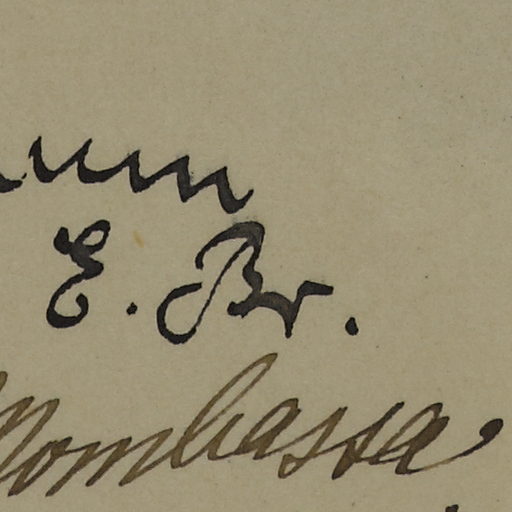 E. Br.
Mombassa.